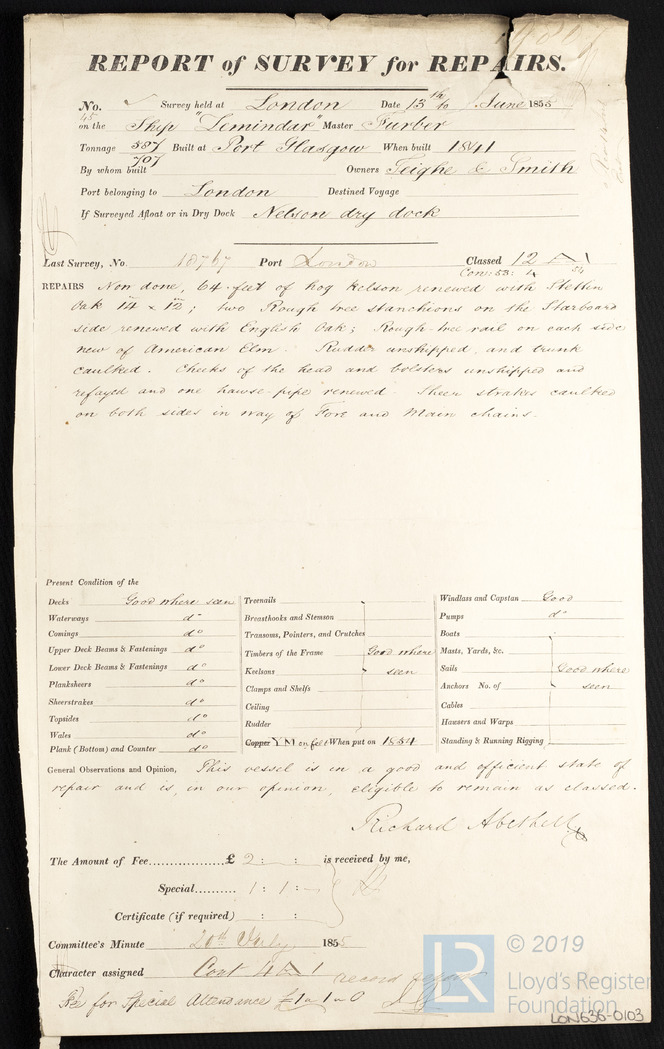 REPORT of SURVEY for REPAIRS.
No. ✓ Survey held at London Date 13th to June 1855
45 on the Ship "Lemindar" Master Furber
Tonnage 587 707 Built at Port Glasgow When built 1841
By whom built Owners Teighe & Smith
Port belonging to London Destined Voyage
If Surveyed Afloat or in Dry Dock Nelson dry dock
Last Survey, No. 18767 Port London Classed 12 A 1
Cons: 53: 54
REPAIRS Now done, 64 feet of hog kelson renewed with Stettin
Oak 14 x 12; two Rough tree stanchions on the Starboard
side renewed with English Oak; Rough tree rail on each side
new of American Elm. Rudder unshipped and trunk
caulked. Cheeks of the head and bolsters unshipped and
refayed and one hawse pipe renewed. Sheer strakes caulked
on both sides in way of Fore and Main chains.
Present Condition of the
Decks Good where seen
Waterways do
Comings do
Upper Deck Beams & Fastenings do
Lower Deck Beams & Fastenings do
Planksheers do
Sheerstrakes do
Topsides do
Wales do
Plank (Bottom) and Counter do
Treenails
Breasthooks and Stemson
Transoms, Pointers, and Crutches
Timbers of the Frame Good where
Keelsons seen
Clamps and Shelfs
Ceiling
Rudder
Copper Y M on felt When put on 1854
Windlass and Capstan Good
Pumps do
Boats
Masts, Yards, &c.
Sails Good where
Anchors No. of seen
Cables
Hausers and Warps
Standing & Running Rigging
General Observations and Opinion, This vessel is in a good and efficient state of
repair and is, in our opinion, eligible to remain as classed.
Richard Abethell
The Amount of Fee £ 2 : : is received by me,
Special 1 : 1 :
Certificate (if required) : :
Committee's Minute 20th July 1855
Character assigned Cont 1
Fee for Special Attendance £1 " 1 " 0
LR
© 2019
Lloyd's Register
Foundation
LON636-0103